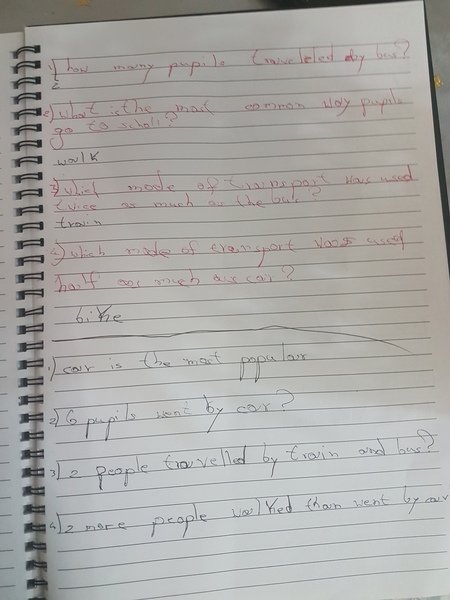 1) how many pupils traveleled by bus?
2
2) what is the most common way pupils
go to scholl?
walk
3) which mode of transport was used
twice as much as the bus?
train
4) which mode of transport was used
half as much as car?
bike
1) car is the most popular
2) 6 pupils went by car?
3) 2 people travelled by train and bus?
4) 2 more people walked than went by car